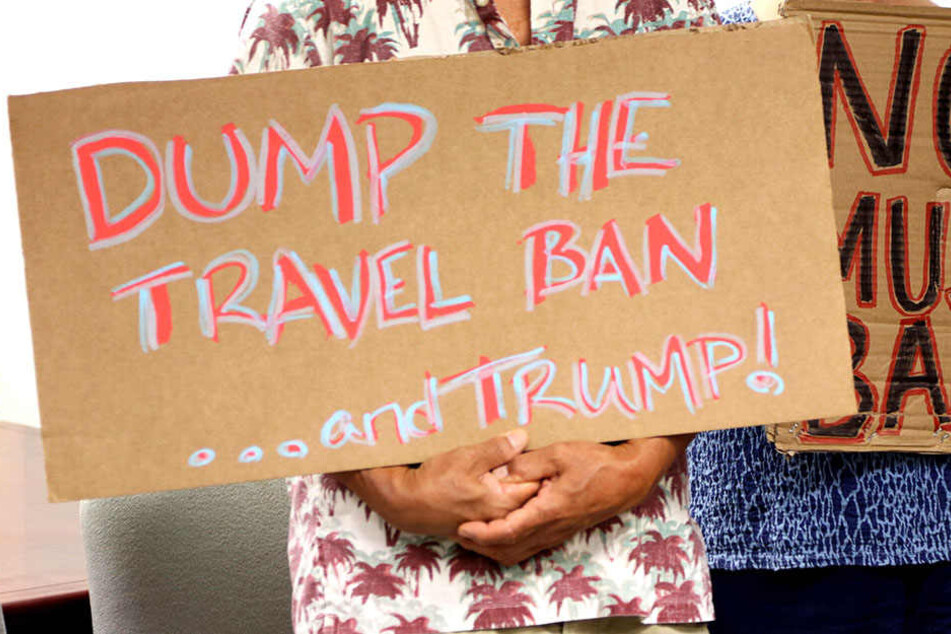 DUMP THE
TRAVEL BAN
...and TRUMP!
NO